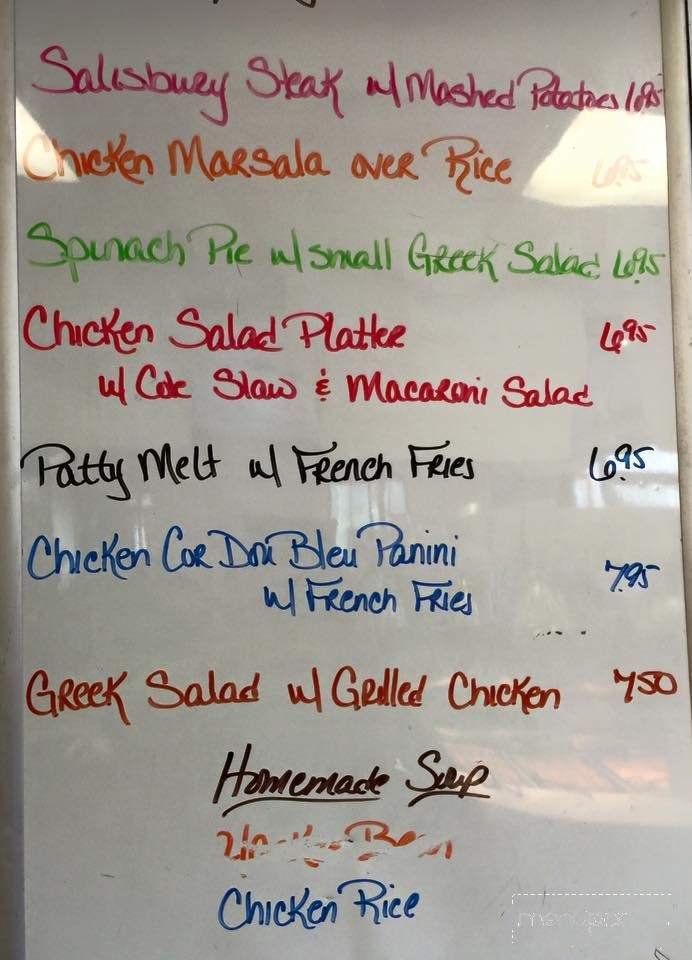 Salisbury Steak w/ Mashed Potatoes 6.95
Chicken Marsala over Rice 6.95
Spinach Pie w/ small Greek Salad 6.95
Chicken Salad Platter 6.95
w/ Cole Slaw & Macaroni Salad
Patty Melt w/ French Fries 6.95
Chicken Cor Don Bleu Panini
w/ French Fries 7.95
Greek Salad w/ Grilled Chicken 7.50
Homemade Soup
Bean
Chicken Rice